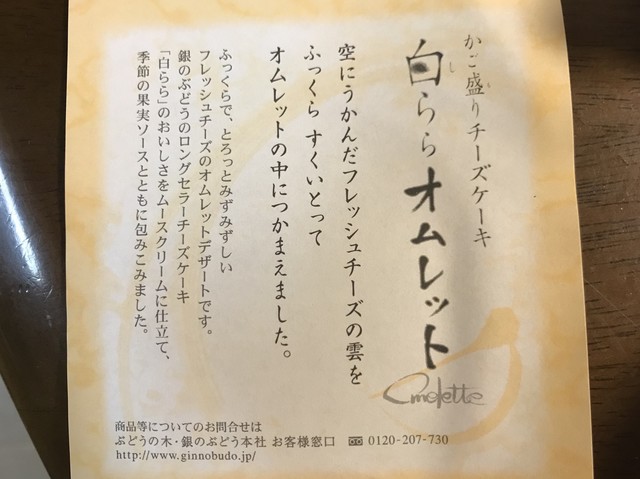 かご盛りチーズケーキ
白らら オムレット
しら
Omelette
空にうかんだフレッシュチーズの雲を
ふっくら すくいとって
オムレットの中につかまえました。
ふっくらで、とろっとみずみずしい
フレッシュチーズのオムレットデザートです。
銀のぶどうのロングセラーチーズケーキ
「白らら」のおいしさをムースクリームに仕立て、
季節の果実ソースとともに包みこみました。
商品等についてのお問合せは
ぶどうの木・銀のぶどう本社 お客様窓口 0120-207-730
http://www.ginnobudo.jp/